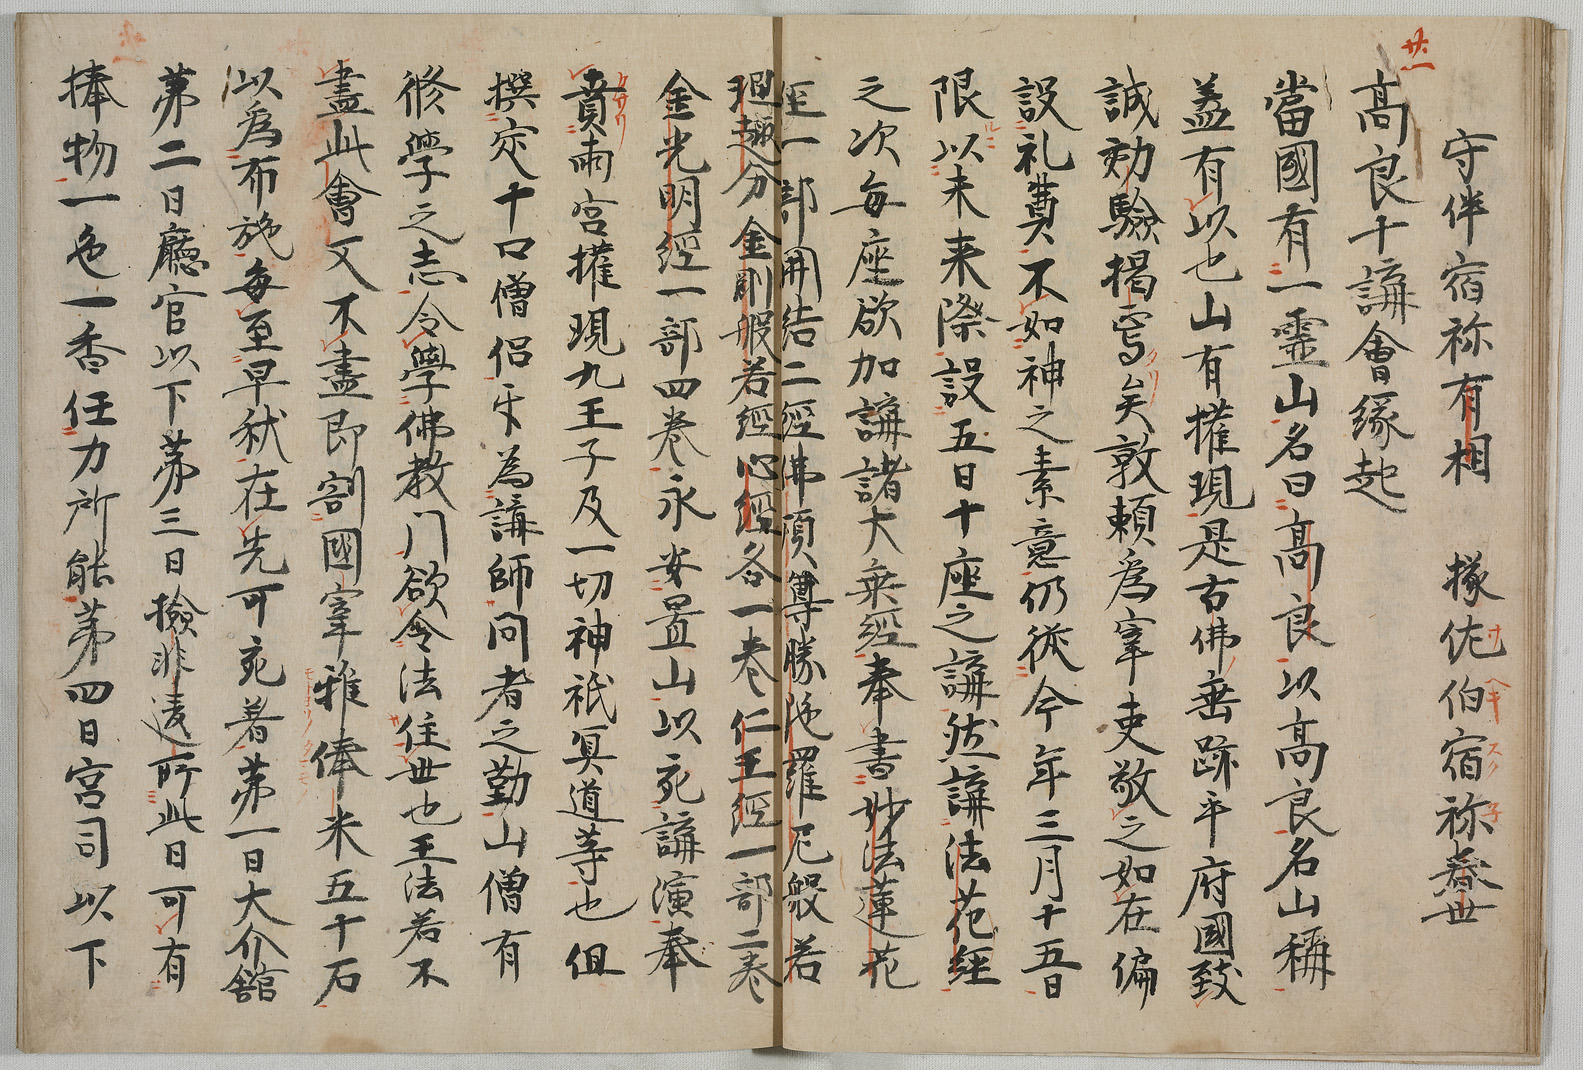 廿一
守伴宿祢有相　掾佐伯宿祢春世
高良十講會縁起
當國有一靈山名曰高良以高良名山稱
蓋有以也山有權現是古佛垂跡乎府國致
誠効驗掲焉矣敦頼爲宰吏敬之如在偏
設礼奠不如神之素意仍従今年三月十五日
限以来来際設五日十座之講然講法花經
之次每座欲加講諸大乘經奉書妙法蓮花
經一部開結二經佛頂尊勝陁羅尼般若
理趣分金剛般若經心經各一巻仁王經一部二巻
金光明經一部四巻永安置山以宛講演奉
賁両宮權現九王子及一切神祇冥道等也但
撰定十口僧侶才為講師問者之勤山僧有
修學之志令學佛教門欲令法住世也王法若不
盡此會又不盡即割國宰雅俸米五十石
以爲布施每至早秋在先可宛着第一日大介舘
第二日廳官以下第三日撿非違所此日可有
捧物一色一香任力所能第四日宮司以下